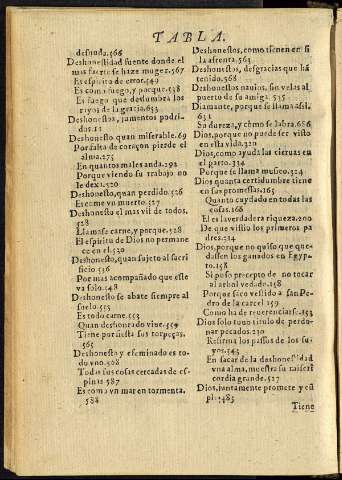 TABLA.
desnuda.566
Deshonestidad fuente donde el
mas fuerte se haze muger.567
Es espiritu de error.549
Es como fuego, y porque.538
Es fuego que deslumbra los
rayos de la gracia.653
Deshonestos, jumentos podri-
dos.11
Deshonesto quan miserable.69
Por falta de coraçon pierde el
alma.275
En quantos males anda.192
Porque viendo su trabajo no
le dexa.320
Deshonesto, quan perdido.526
Es como vn muerto.527
Deshonesto el mas vil de todos.
528
Llamase carne, y porque.528
El espiritu de Dios no permane
ce en el.520
Deshonesto, quan sujeto al sacri
ficio 516
Por mas acompañado que este
va solo.548
Deshonesto se abate siempre al
suelo.553
Es todo carne.553
Quan deshonrado viue.559
Tiene por fiesta sus torpeças.
565
Deshonesta y efeminado es to-
do vno.568
Todas sus cosas cercadas de es-
pinas 587
Es como vn mar en tormenta.
588
Deshonestos, como tienen en si
la afrenta.563
Deshonestos, desgracias que hã
tenido.568
Deshonestos nauios, sin velas al
puerto de su amiga. 535
Diamante, porque se llama assi.
651
Su dureza, y como se labra.686
Dios, porque no puede ser visto
en esta vida.320
Dios, como ayuda las cieruas en
el parto.324
Porque se llama musico.324
Dios quanta certidumbre tiene
en sus promessas.165
Quanto cuydado en todas las
cosas.168
El es la verdadera riqueza.200
De que vistio los primeros pa
dres.214
Dios, porque no quiso que que-
dassen los ganados en Egyp-
to.158
Si puso precepto de no tocar
al arbol vedado.158
Porque saco vestido a san Pe-
dro de la carcel 159
Como ha de reuerenciarse.153
Dios solo tuuo titulo de perdo-
nar pecados.210
Reforma los passos de los su-
yos.343
En sacar de la deshonestidad
vna alma, muestra su miseri
cordia grande.527
Dios, juntamente promete y cũ
ple.483
Tiene